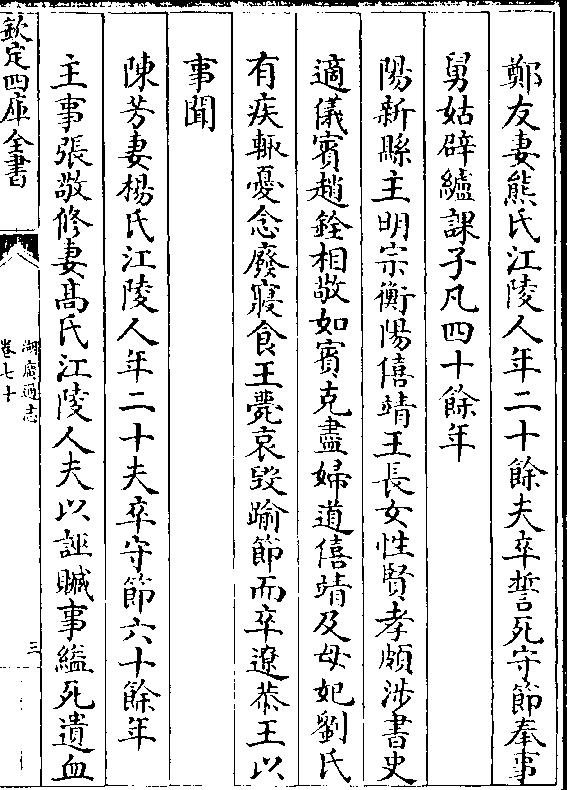 鄭友妻熊氏江陵人年二十餘夫卒誓死守節奉事
舅姑辟纑課子凡四十餘年
陽新縣主明宗衡陽僖靖王長女性賢孝頗涉書史
適儀賓趙銓相敬如賓克盡婦道僖靖及母妃劉氏
有疾輒憂念廢寢食王薨哀毀踰節而卒遼恭王以
事聞
陳芳妻楊氏江陵人年二十夫卒守節六十餘年
主事張敬修妻髙氏江陵人夫以誣贓事縊死遺血
欽定四庫全書
湖廣通志
卷七十
三